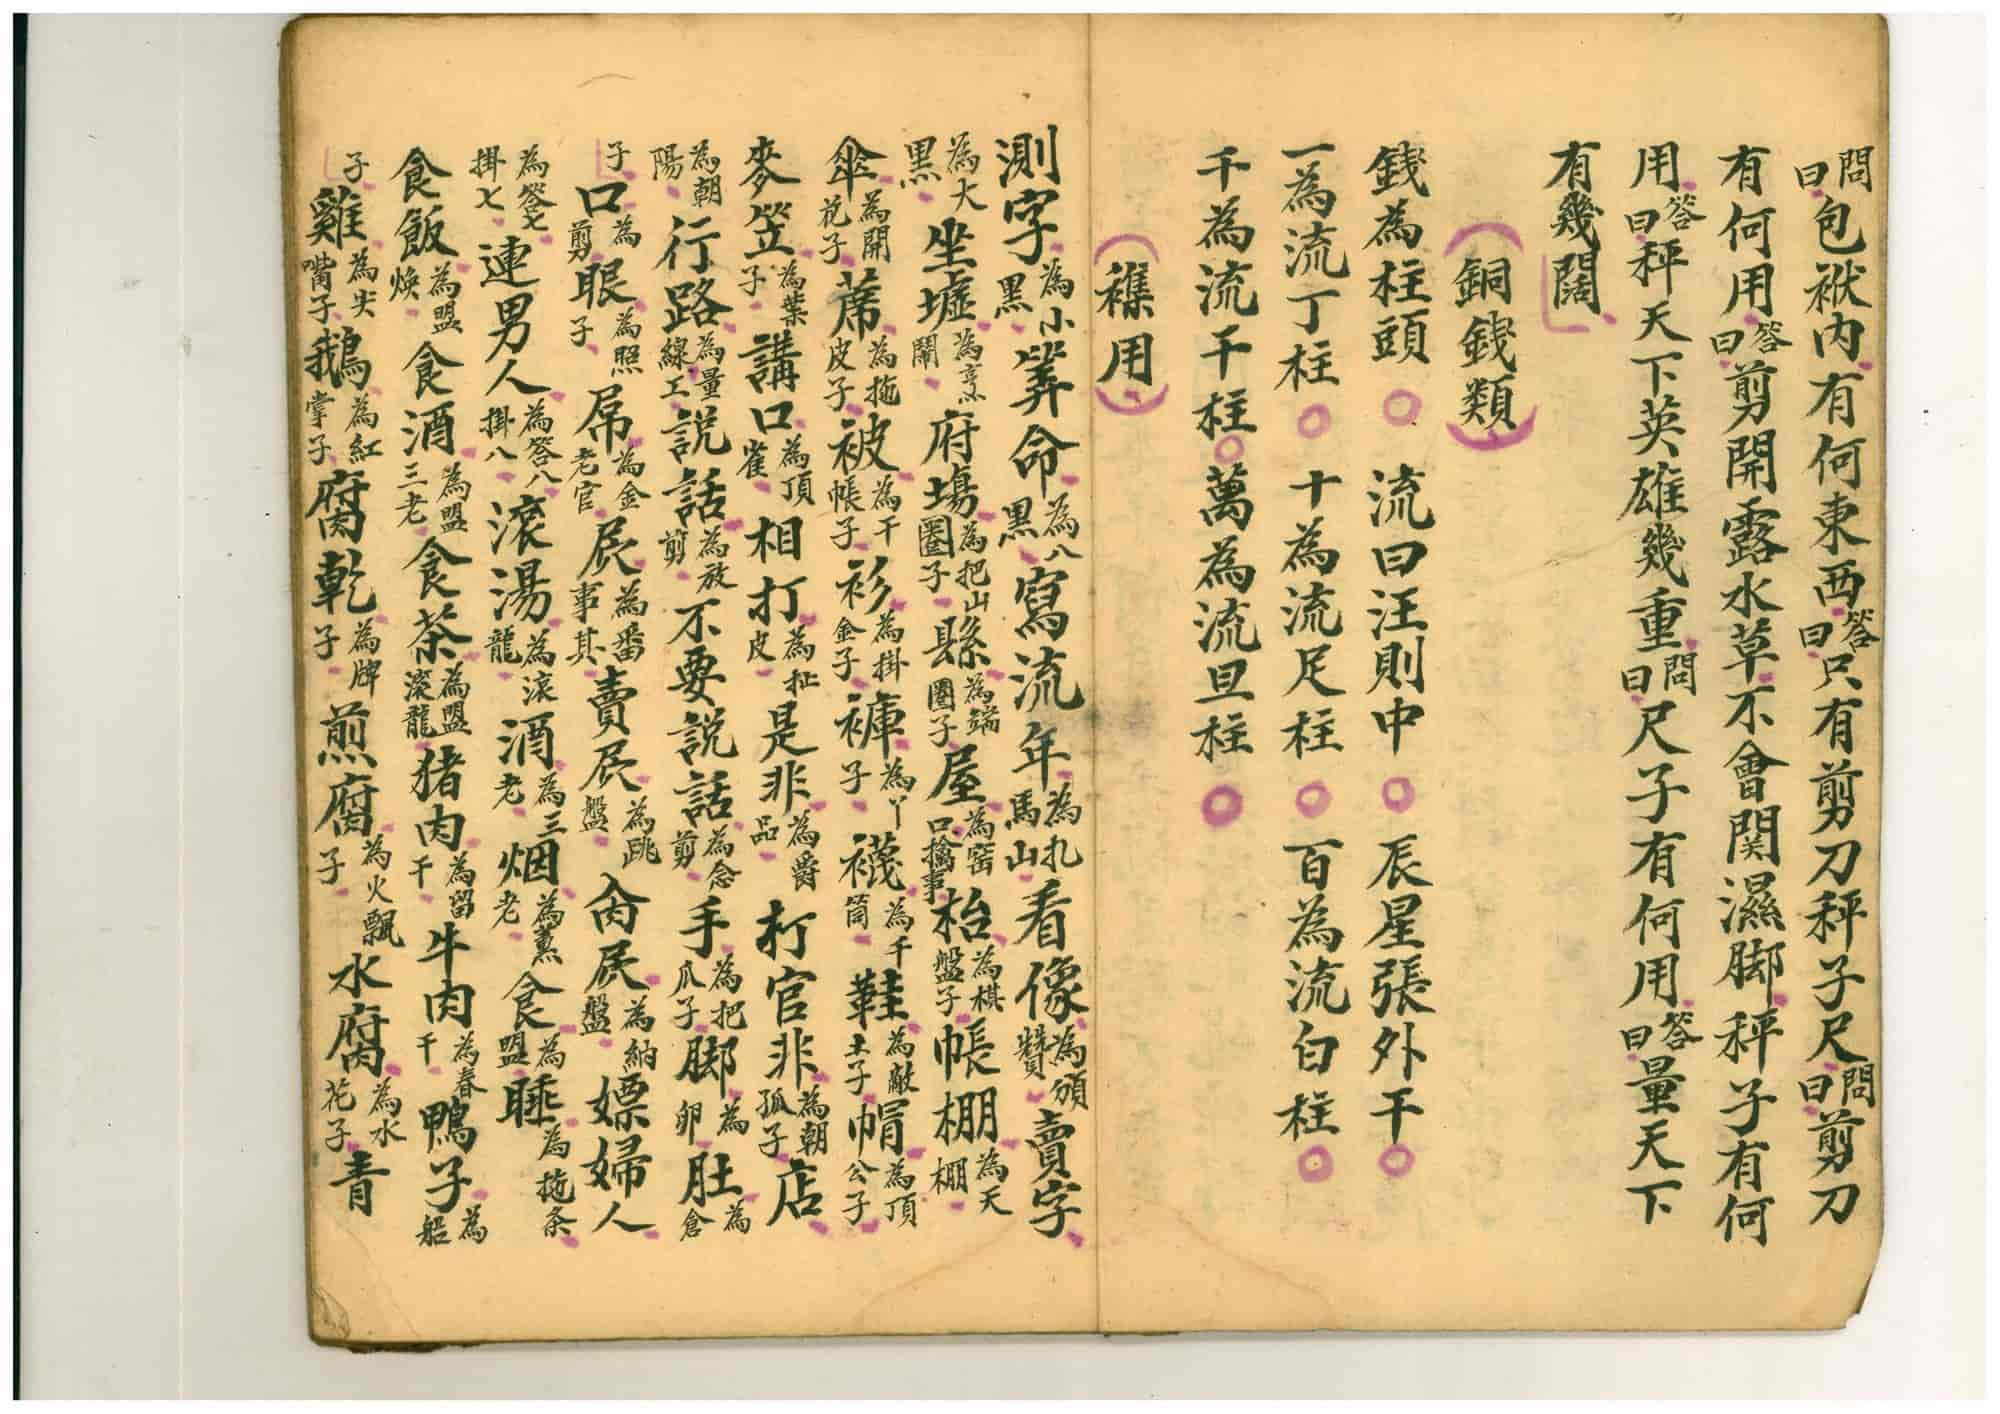 問曰包袱内有何東西答曰只有剪刀秤子尺問曰剪刀
有何用答曰剪開露水草不會関濕脚秤子有何
用答曰秤天下英雄幾重問曰尺子有何用答曰量天下
有幾闊
銅錢類
錢為柱頭○流曰汪則中○辰星張外干○
一為流丁柱○十為流足柱○百為流白柱○
千為流千柱○萬為流旦柱○
襍用
測字為小黑筭命為八黑寫流年為扎馬山看像為頒贊賣字
為大黑坐墟為烹鬧府場為把山圈子縣為端圈子屋為窑口擒事枱為棋盤子帳棚為天棚
傘為開花子蓆為拖皮子被為干帳子衫為掛金子褲為丫子襪為千筒鞋為敵土子帽為頂公子
麥笠為葉子講口為頂雀相打為扯皮是非為爵品打官非為朝孤子店
為朝陽行路為量線工說話為放剪不要說話為念剪手為把爪子脚為卵肚為倉
子口為剪眼為照子屌為金老官㞘為番事其賣㞘為跳盤肏㞘為納盤嫖婦人
為答七掛七連男人為答八掛八滾湯為滚龍酒為三老烟為薰老食為盟睡為拖条
食飯為盟焕食酒為盟三老食茶為盟滚龍猪肉為留干牛肉為春干鴨子為船
子雞為尖嘴子鵝為紅掌子腐乾為牌子煎腐為火飄子水腐為水花子青